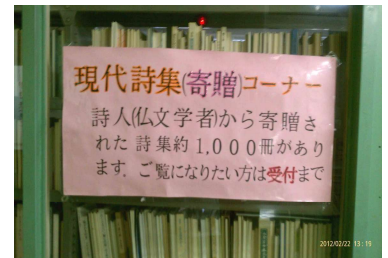 現代詩集(寄贈)コーナー
詩人(仏文学者)から寄贈さ
れた 詩集約1,000冊があり
ます。ご覧になりたい方は受付まで
2012/02/22 13:19